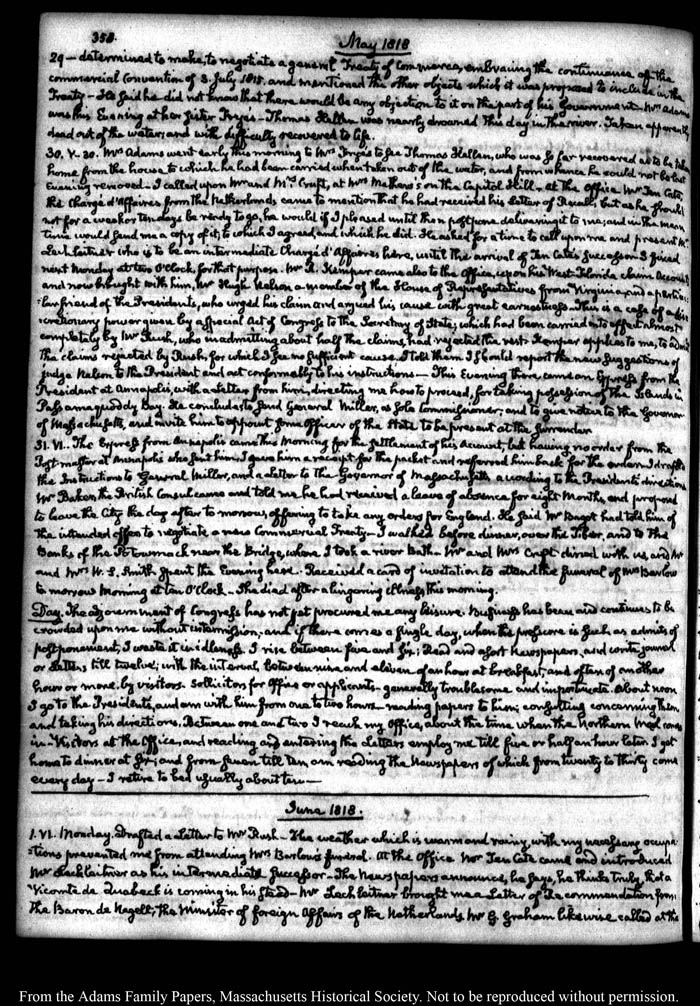 358.
May 1818
29 — determined to make, to negotiate a general Treaty of Commerce, embracing the continuance of the
commercial Convention of 3. July 1815. and mentioned the other objects which it was proposed to include in the
Treaty — He said he did not know that there would be any objection to it on the part of his Government. Mrs Adams
was this Evening at her Sister Frye's — Thomas Hellen was nearly drowned this day in the river. Taken apparently
dead out of the water; and with difficulty recovered to life.
30. V. 30. Mrs Adams went early this morning to Mrs Frye's to see Thomas Hellen, who was so far recovered as to be taken
home from the house to which he had been carried when taken out of the water, and from whence he could not be last
Evening removed — I called upon Mr and Mrs Cruft, at Mrs Mathers's on the Capitol Hill — at the Office. Mr Ten Cate,
the Chargé d'Affaires from the Netherlands came to mention that he had received his Letter of Recall, but as he should
not for a week or ten days be ready to go, he would if I pleased until then postpone delivering it to me; and in the mean
time would send me a copy of it, to which I agreed, and which he did. He asked for a time to call upon me and present Mr
Lechleitner who is to be an intermediate Chargé d'Affaires here, until the arrival of Ten Cate's Successor. I fixed
next Monday at two O'Clock, for that purpose. Mr R. Kemper came also to the Office, upon his West-Florida claim Account
and now brought with him, Mr Hugh Nelson a member of the House of Representatives from Virginia, and a particu-
-lar friend of the Presidents, who urged his claim and argued his cause with great earnestness. This is a case of a dis-
-cretionary power given by a special Act of Congress to the Secretary of State; which had been carried into effect almost
completely by Mr Rush, who in admitting about half the claims, had rejected the rest. Kemper applies to me, to admit
the claims rejected by Rush, for which I see no sufficient cause. I told them I should report the new suggestions of
judge Nelson to the President and act conformably to his instructions — This Evening there came an Express from the
President at Annapolis, with a Letter from him, directing me how to proceed, for taking possession of the Islands in
Passamaquoddy Bay. He concludes to send General Miller, as sole Commissioner; and to give notice to the Governor
of Massachusetts, and invite him to appoint some Officer of the State to be present at the surrender
31. VI. The Express from Annapolis came this Morning for the settlement of his Account, but having no order from the
Post-master at Annapolis who sent him I gave him a receipt for the packet and referred him back for the order. I drafted
the Instructions to General Miller, and a letter to the Governor of Massachusetts according to the President's directions
Mr Baker, the British Consul came and told me he had received a leave of absence for eight Months, and proposed
to leave the City the day after to morrow, offering to take any orders for England. He said Mr Bagot had told him of
the intended offer to negotiate a new Commercial Treaty — I walked before dinner, over the Tiber, and to the
Banks of the Potowmack near the Bridge, where I took a river Bath. Mr and Mrs Cruft dined with us, and Mr
and Mrs W. S. Smith spent the Evening here. Received a card of invitation to attend the funeral of Mrs Barlow
to morrow Morning at ten O'Clock — She died after a lingering illness this morning.
Day. The adjournment of Congress has not yet procured me any leisure. Business has been and continues to be
crowded upon me without intermission; and if there comes a single day, when the pressure is such as admits of
postponement, I waste it in idleness. I rise between five and six; Read and assort Newspapers, and write journal
or Letters, till twelve; with the interval, between nine and eleven of an hour at breakfast, and often of another
hour or more by visitors. Solicitors for Office or applicants generally troublesome and importunate. About noon
I go to the Presidents, and am with him from one to two hours — reading papers to him; consulting concerning them
and taking his directions. Between one and two I reach my Office, about the time when the Northern Mail comes
in — Visitors at the Office, and reading and entering the Letters employ me till five or half an hour later. I get
home to dinner at six; and from seven till ten am reading the Newspapers of which from twenty to thirty come
every day — I retire to bed usually about ten —
June 1818.
1. VI. Monday. Drafted a Letter to Mr Rush — The weather which is warm and rainy, with my necessary occupa-
-tions prevented me from attending Mrs Barlow's funeral. At the Office Mr Ten Cate came and introduced
Mr Lechleitner as his intermediate Successor — The Newspapers announce, he says, he thinks truly, that a
Vicomte de Quabeck is coming in his stead — Mr Lechleitner brought me a Letter of Recommendation from
the Baron de Nagell, the Minister of foreign Affairs of the Netherlands. Mr G. Graham likewise called at the
From the Adams Family Papers, Massachusetts Historical Society. Not to be reproduced without permission.